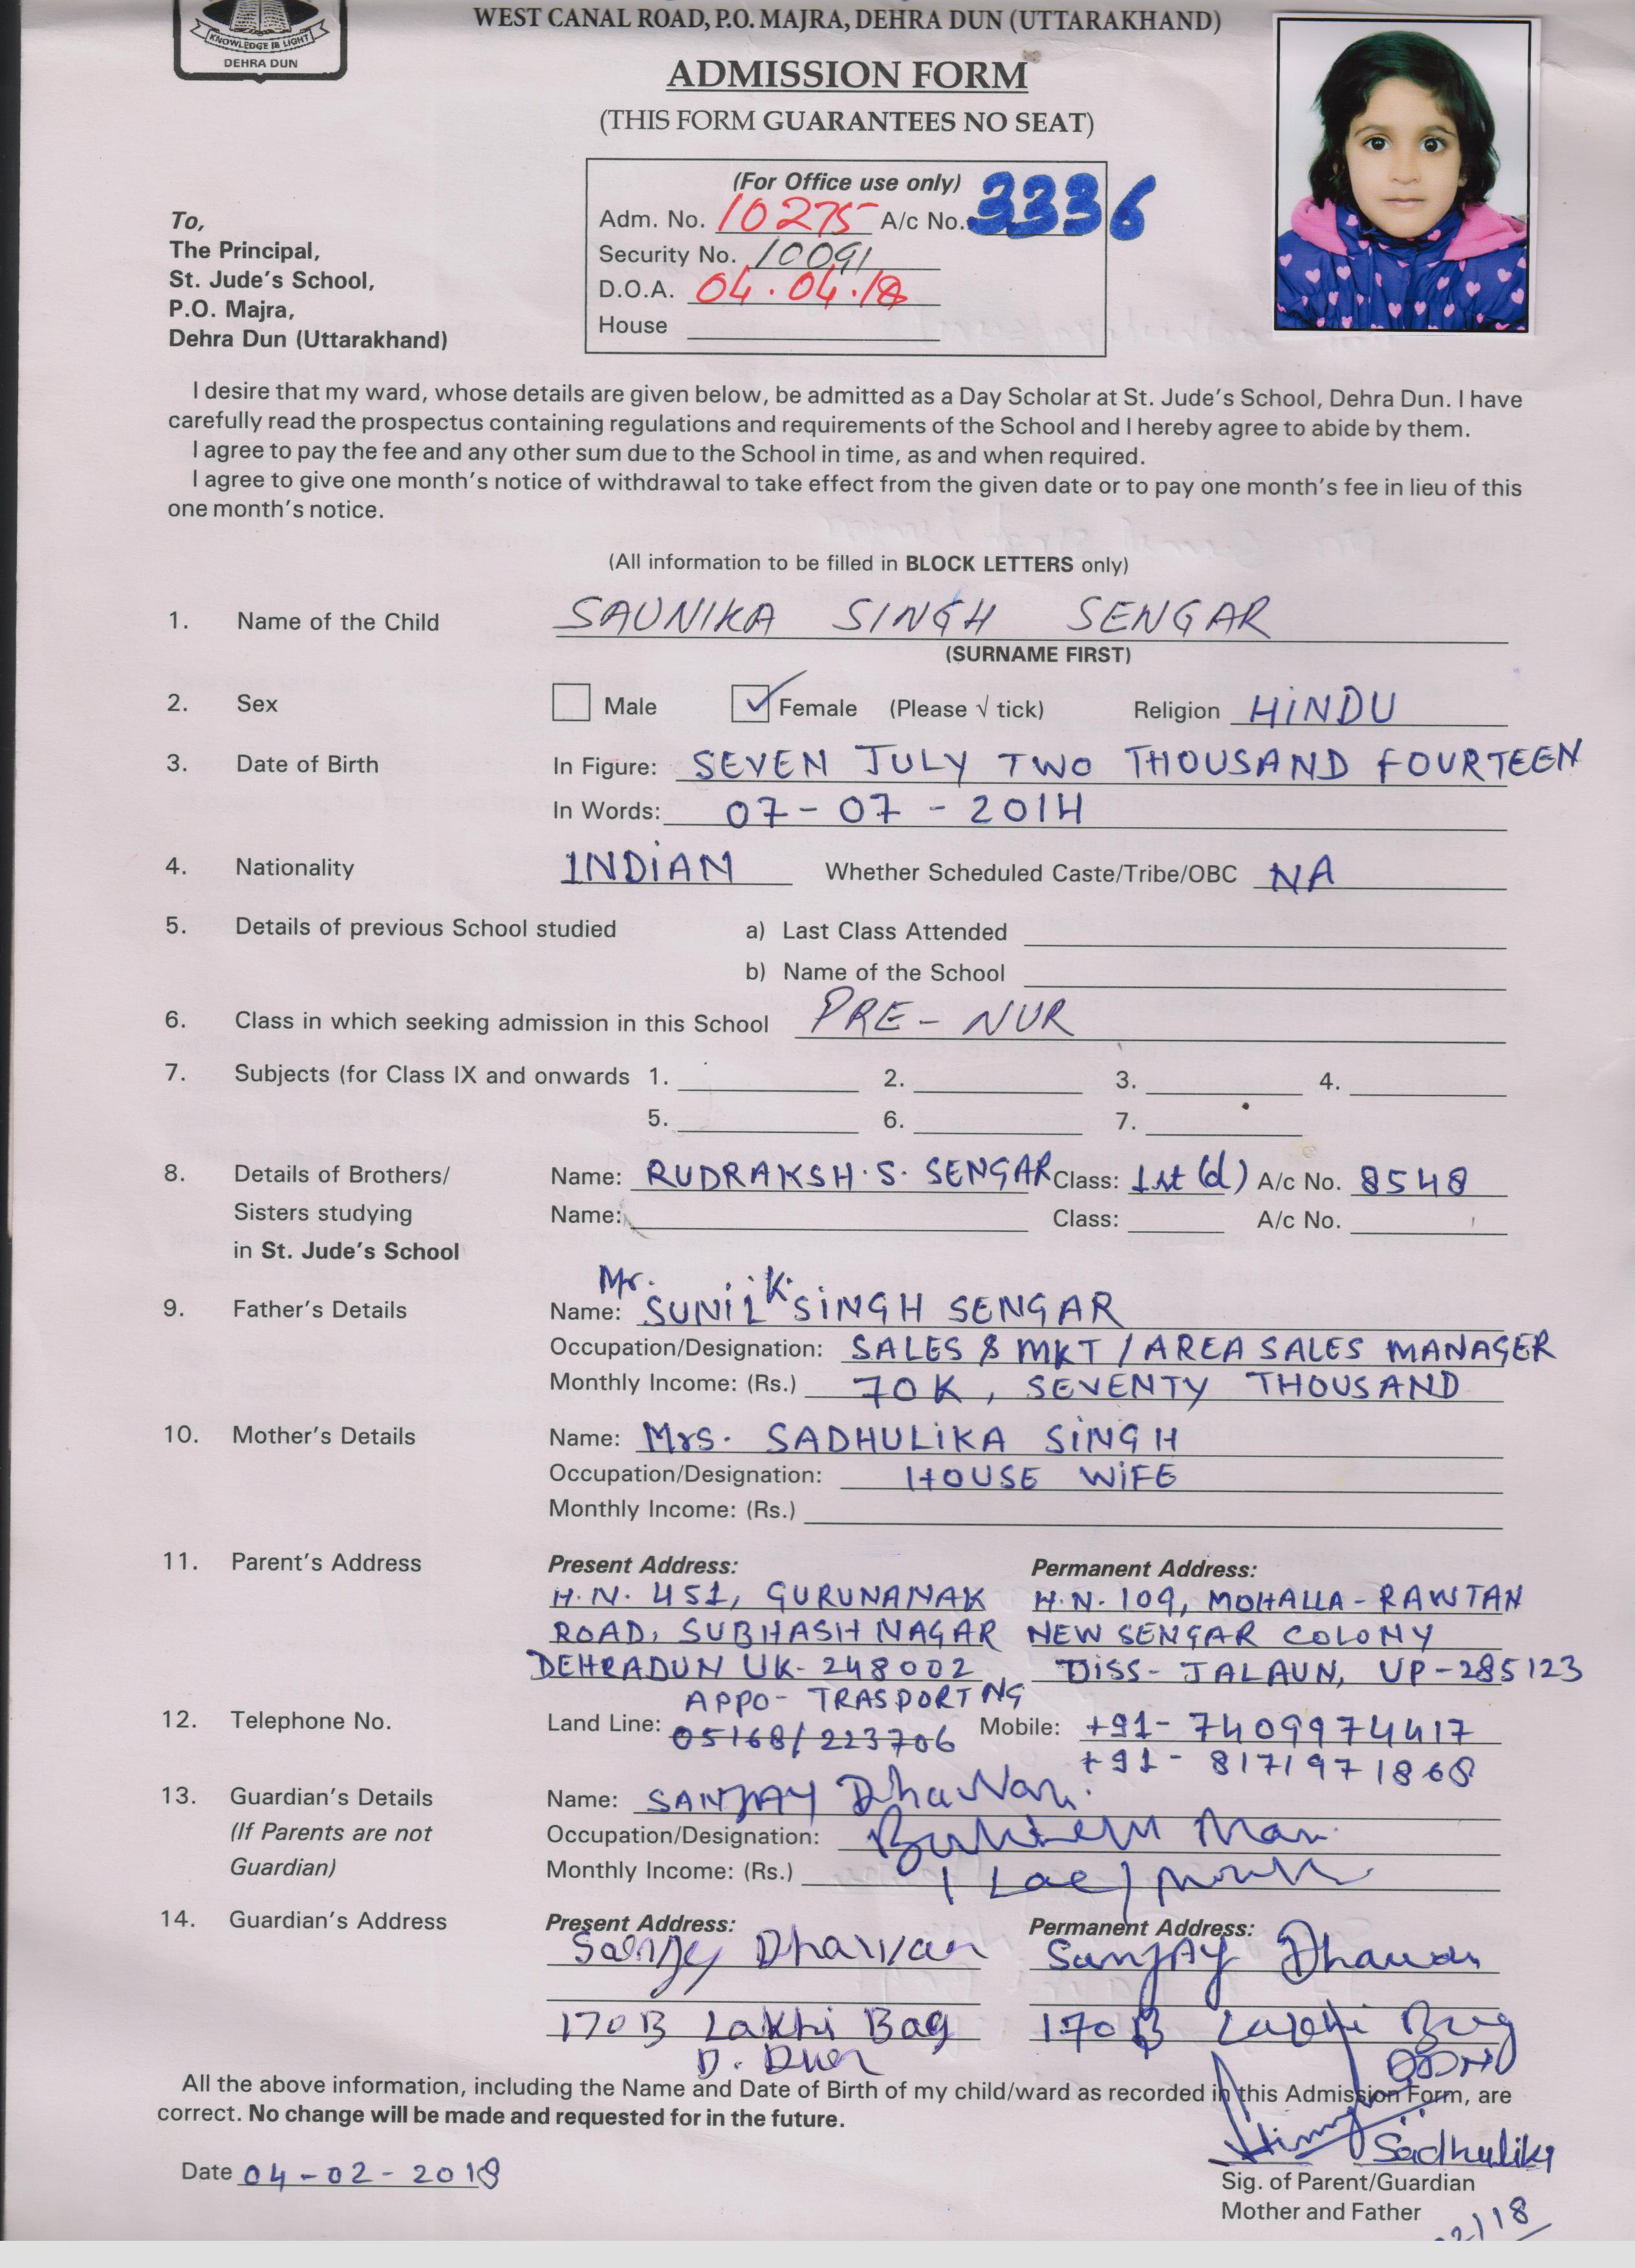 KNOWLEDGE IS LIGHT
DEHRA DUN
WEST CANAL ROAD, P.O. MAJRA, DEHRA DUN (UTTARAKHAND)
ADMISSION FORM
(THIS FORM GUARANTEES NO SEAT)
(For Office use only)
Adm. No. 10275 A/c No. 3336
Security No. 10091
D.O.A. 04.04.18
House
To,
The Principal,
St. Jude's School,
P.O. Majra,
Dehra Dun (Uttarakhand)
I desire that my ward, whose details are given below, be admitted as a Day Scholar at St. Jude's School, Dehra Dun. I have
carefully read the prospectus containing regulations and requirements of the School and I hereby agree to abide by them.
I agree to pay the fee and any other sum due to the School in time, as and when required.
I agree to give one month's notice of withdrawal to take effect from the given date or to pay one month's fee in lieu of this
one month's notice.
(All information to be filled in BLOCK LETTERS only)
1. Name of the Child SAUNIKA SINGH SENGAR
(SURNAME FIRST)
2. Sex Male Female (Please √ tick) Religion HINDU
3. Date of Birth In Figure: SEVEN JULY TWO THOUSAND FOURTEEN
In Words: 07-07-2014
4. Nationality INDIAN Whether Scheduled Caste/Tribe/OBC NA
5. Details of previous School studied a) Last Class Attended
b) Name of the School
6. Class in which seeking admission in this School PRE-NUR
7. Subjects (for Class IX and onwards 1. 2. 3. 4.
5. 6. 7.
8. Details of Brothers/ Name: RUDRAKSH.S. SENGAR Class: 1st (d) A/c No. 8548
Sisters studying Name: Class: A/c No.
in St. Jude's School
9. Father's Details Name: Mr. SUNIL K. SINGH SENGAR
Occupation/Designation: SALES & MKT / AREA SALES MANAGER
Monthly Income: (Rs.) 70K, SEVENTY THOUSAND
10. Mother's Details Name: Mrs. SADHULIKA SINGH
Occupation/Designation: HOUSE WIFE
Monthly Income: (Rs.)
11. Parent's Address Present Address: Permanent Address:
H.N. 451, GURUNANAK H.N. 109, MOHALLA-RAWTAN
ROAD, SUBHASH NAGAR NEW SENGAR COLONY
DEHRADUN UK-248002 DISS-JALAUN, UP-285123
APPO- TRASPORTNG
12. Telephone No. Land Line: 05168/223706 Mobile: +91-7409974417
+91-8171971868
13. Guardian's Details Name: SANJAY Dhawan
(If Parents are not Occupation/Designation: Man
Guardian) Monthly Income: (Rs.) 1 Lac/month
14. Guardian's Address Present Address: Permanent Address:
Sanjay Dhawan Sanjay Dhawan
170B Lakhi Bag 170B Lakhi Bag
D. Dun DDN
All the above information, including the Name and Date of Birth of my child/ward as recorded in this Admission Form, are
correct. No change will be made and requested for in the future.
Sadhulika
Date 04-02-2018
Sig. of Parent/Guardian
Mother and Father